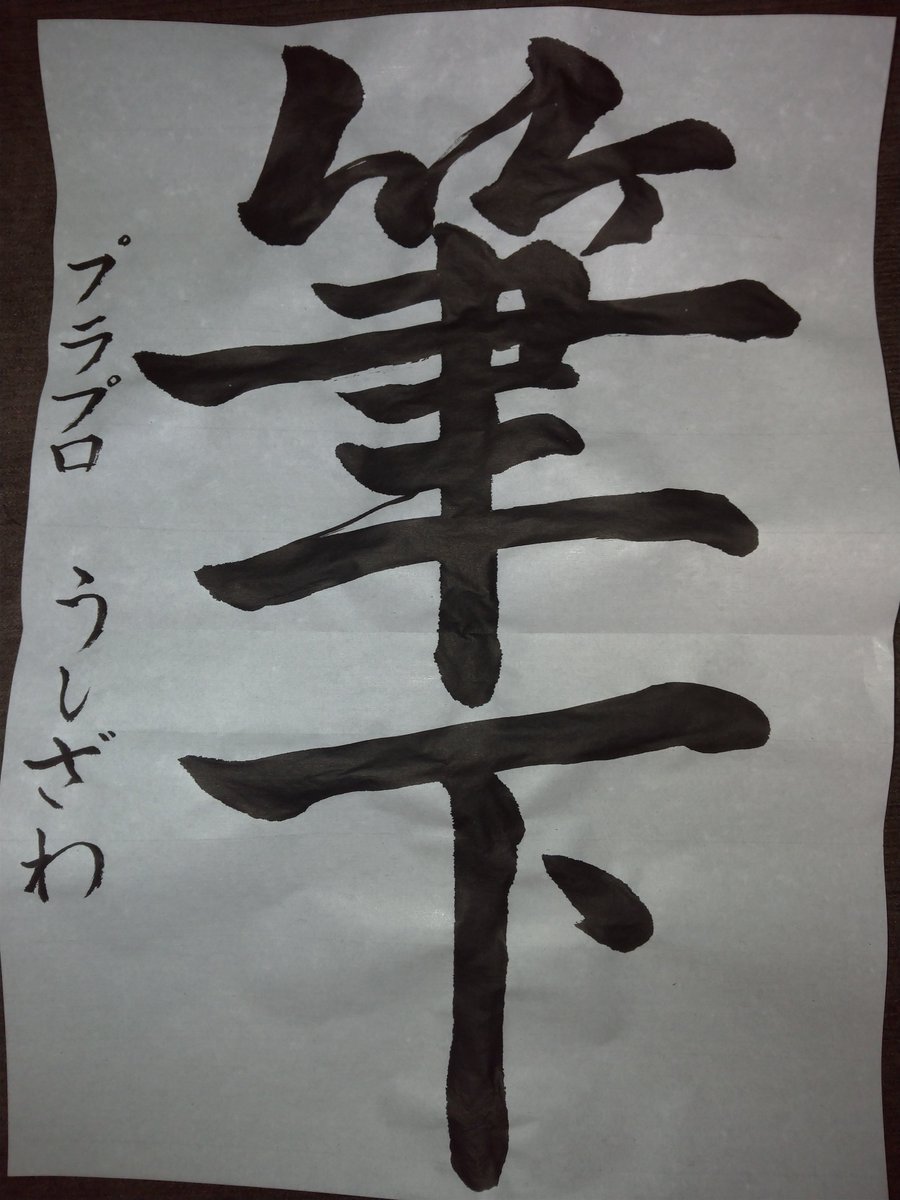 筆下
プラプロ うしざわ